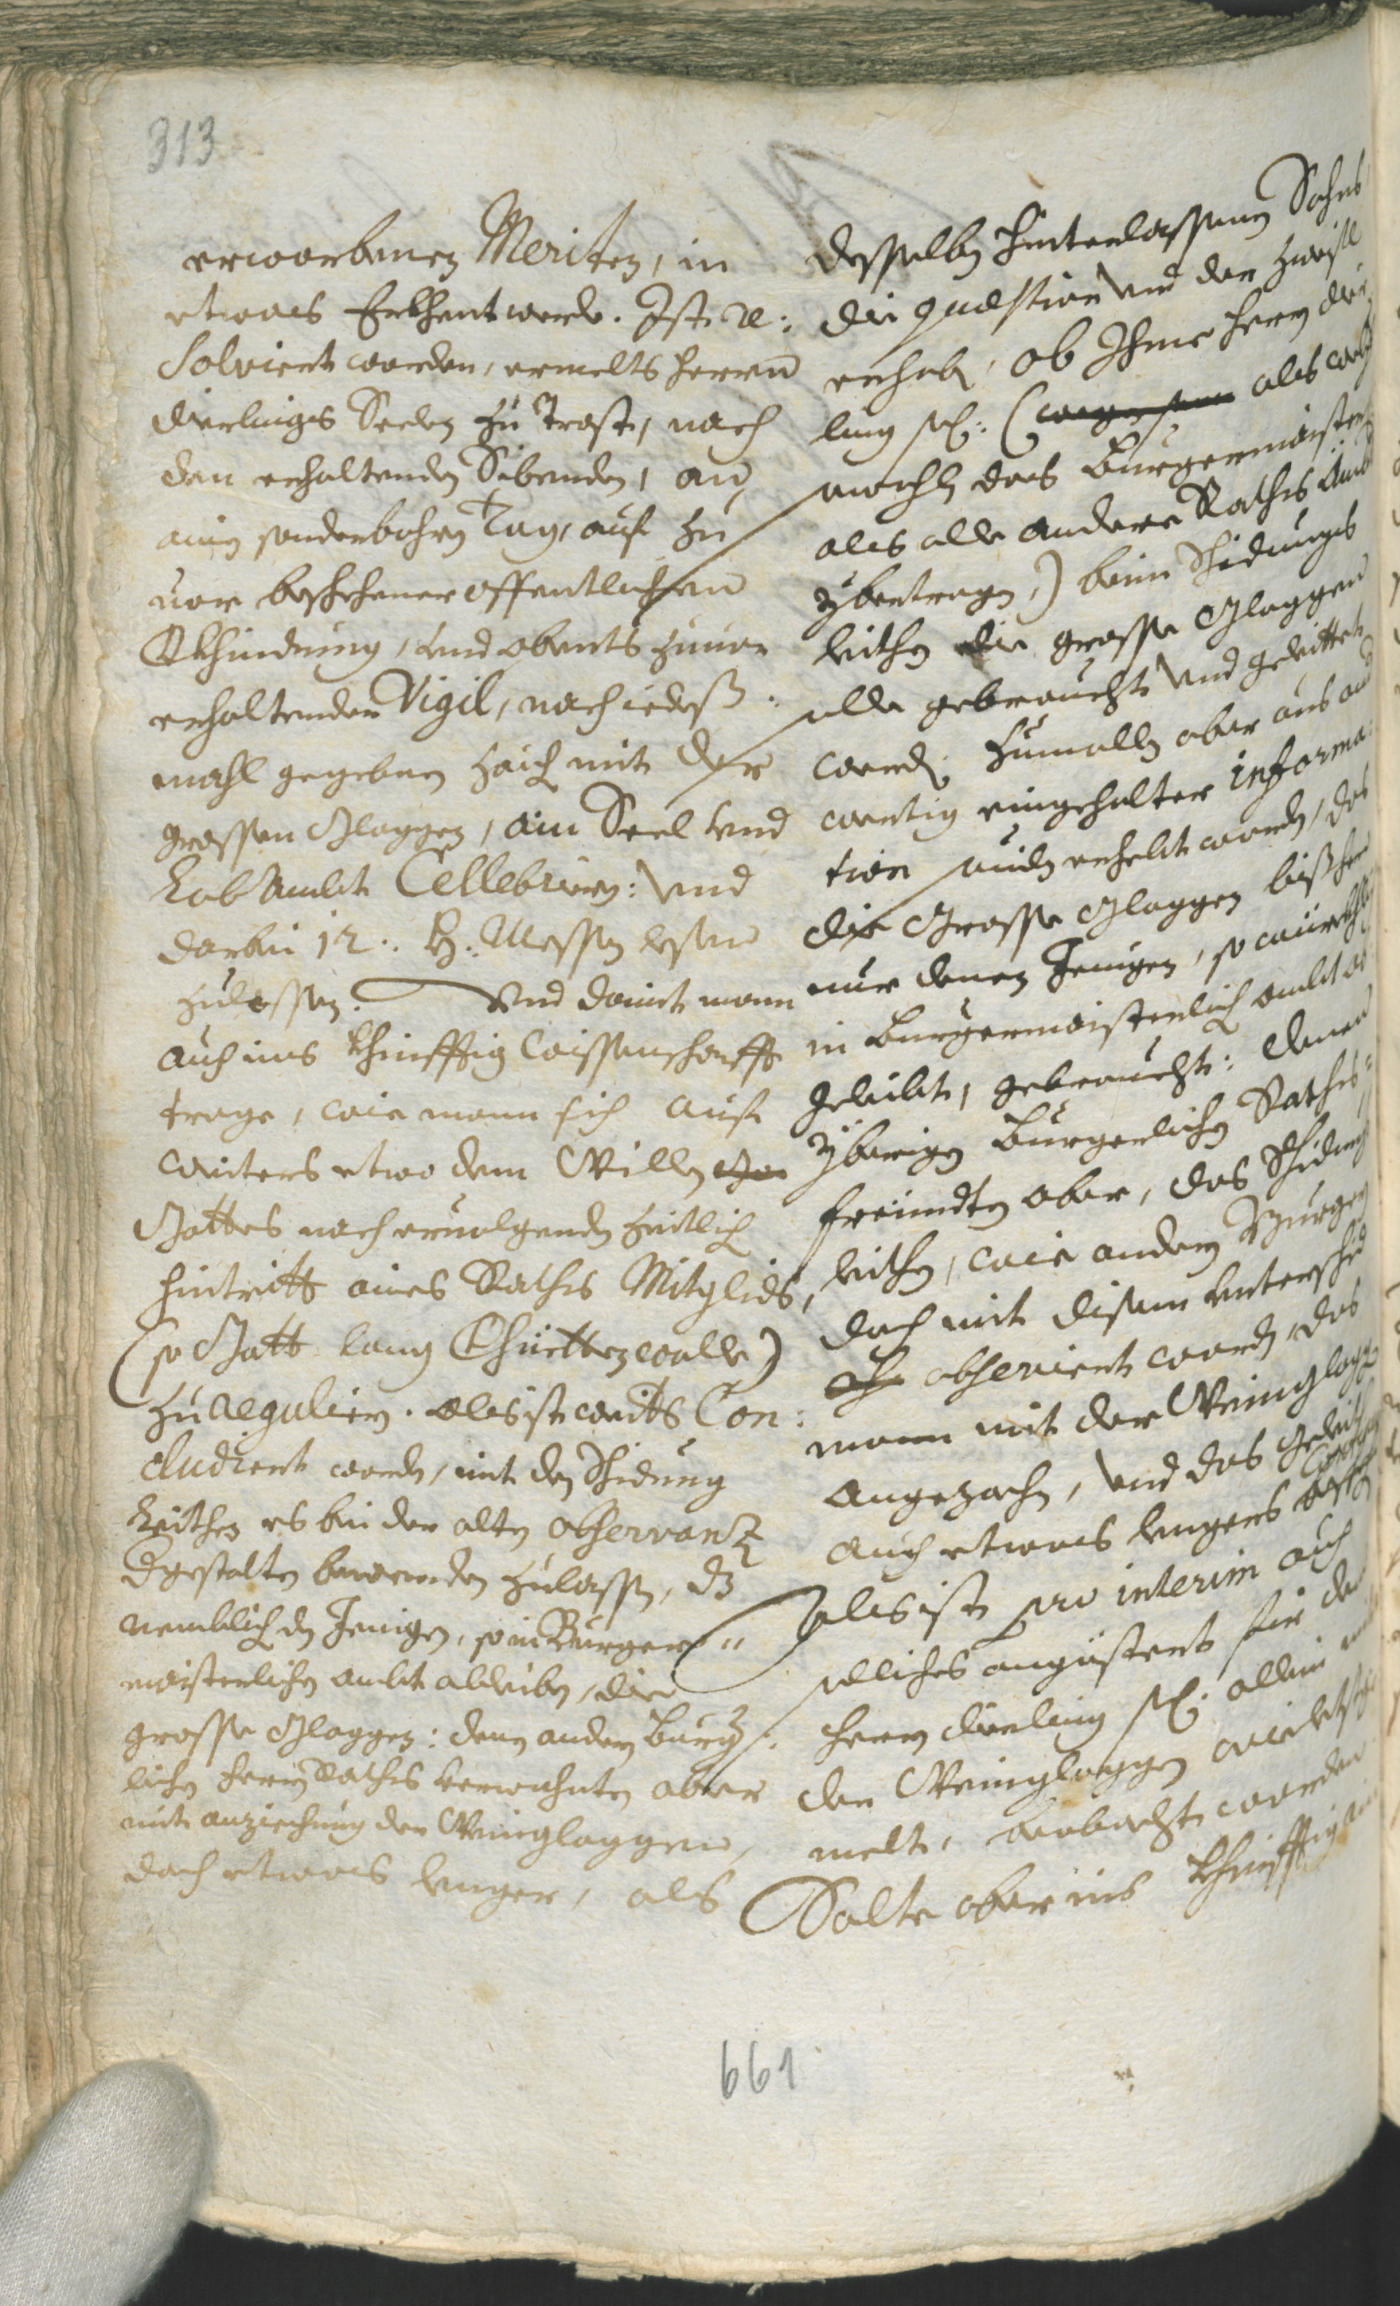 313
erworbenen Meriten, in
etwas Erkhent werde. Ist re:
solviert worden, ermelts Herrn
Dierlings Seelen zu Trost, nach
den erhaltenden Sibenden, an
ain sonderbahren Tag, auf zu
uor beschehener offentlichen
Verkhindung, und abents zuuor
erhaltender Vigil, nach iedeß
mahl gegebnen Zaich mit der
grossen Gloggen, ain Seel und
Lob Ambt Cellebriern: und
darbei 12. H. Messen lesen
zulassen. Und damit mann
auch ins khinfftig Wissenschafft
trage, wie mann sich auf
weiters etwo dem Willen
Gottes nach ervolgenden zeitlich
Hintritt aines Rathes Mitglids,
(so Gott lang Verhietten wolle)
zu regulirn. Als ist weits Con:
cludiert worden, mit den Schidung
Leithen es bei der alten observanz
dergestalten bewenden zulassen, dz
nemblich den Jenigen, so in Burger
maisterlichen Ambt ableiben, die
grosse Gloggen: denen andern Burger
lichen Herrn Rathes verwohnten aber
mit anziechung der Weingloggen,
doch etwas lenger, als
desselben hinterlassenen Sohns
die quæstion und der Zweifl
erhebt, ob Ihme Herrn Dier
ling sel: (als welcher
mehrmahln das Burgermaister
als alle andere Rathes Ämbter
ybertragen,) beim Schidungs
leithen die grosse Gloggen
solle gebraucht und geleittet
werden. Zumallen aber aus an
wertig eingeholter informa:
tion souiln erhelt worden, das
die Grosse Gloggen bißhero
nur denen Jenigen, so würkhlich
in Burgermaisterlich Ambt ab
geleibt, gebraucht: denen
ybrigen Burgerlichen Rathes
freundten aber, das Schidung
leithen, wie andern Burgern
doch mit disem Unterschid
observiert worden, das
mann mit der Weinglogg
angezochen, und das Geleit
auch etwas lengers
Als ist pro interim auch
solliches angeistert für den
Herrn Dierling sel. allein mit
der Weingloggen wie obste
melt, beobacht worden.
Solte aber ins khinfftig
661